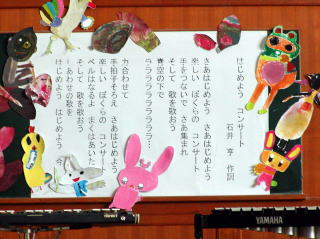 はじめよう コンサート
石井 亨 作詞
さあはじめよう さあはじめよう
楽しい ぼくらの コンサート
手をつないで さあ集まれ
そして 歌を歌おう
青空の下で
ラララララララララ…
力合わせて
手拍子そろえ さあはじめよう
楽しい ぼくらの コンサート
ベルはなるよ まくはあいた
そして 歌を歌おう
しあわせの歌を
はじめよう はじめよう 今
YAMAHA